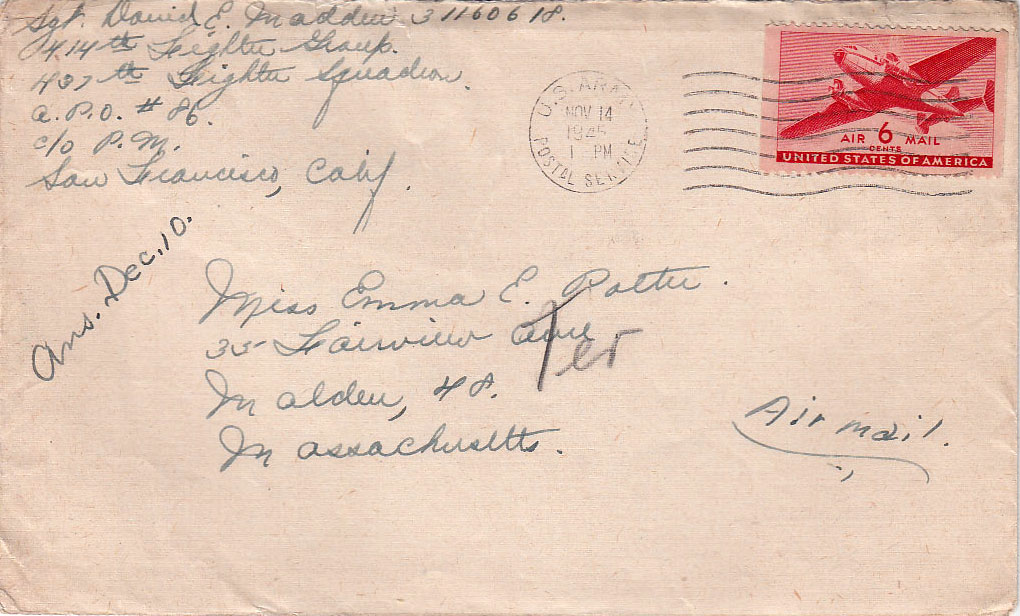 Sgt. David E. Madden 31160618.
414th Fighter Group.
437th Fighter Squadron
A.P.O. # 86.
c/o P.M.
San Francisco, Calif.
U.S. ARMY
NOV 14
1945
1 PM
POSTAL SERVICE
AIR 6 MAIL
CENTS
UNITED STATES OF AMERICA
Ans. Dec. 10.
Miss Emma E. Potter.
35 Fairview Ave
Malden, 48.
Massachusetts.
Air mail.